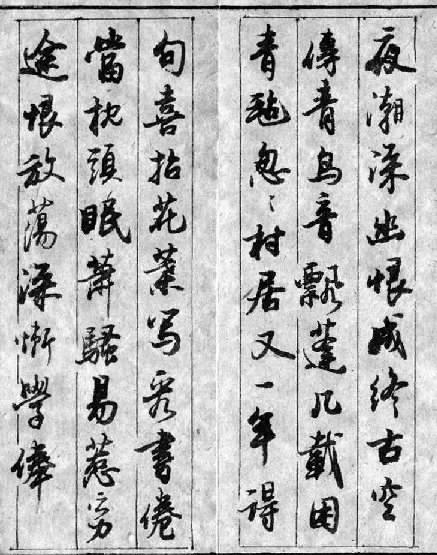 夜潮深幽恨成終古空
傳青鳥音飄蓬几載困
青氈忽〻村居又一年得
句喜拈花葉写看書倦
當枕頭眠蕭騷易惹穷
途恨放蕩深慚學俸